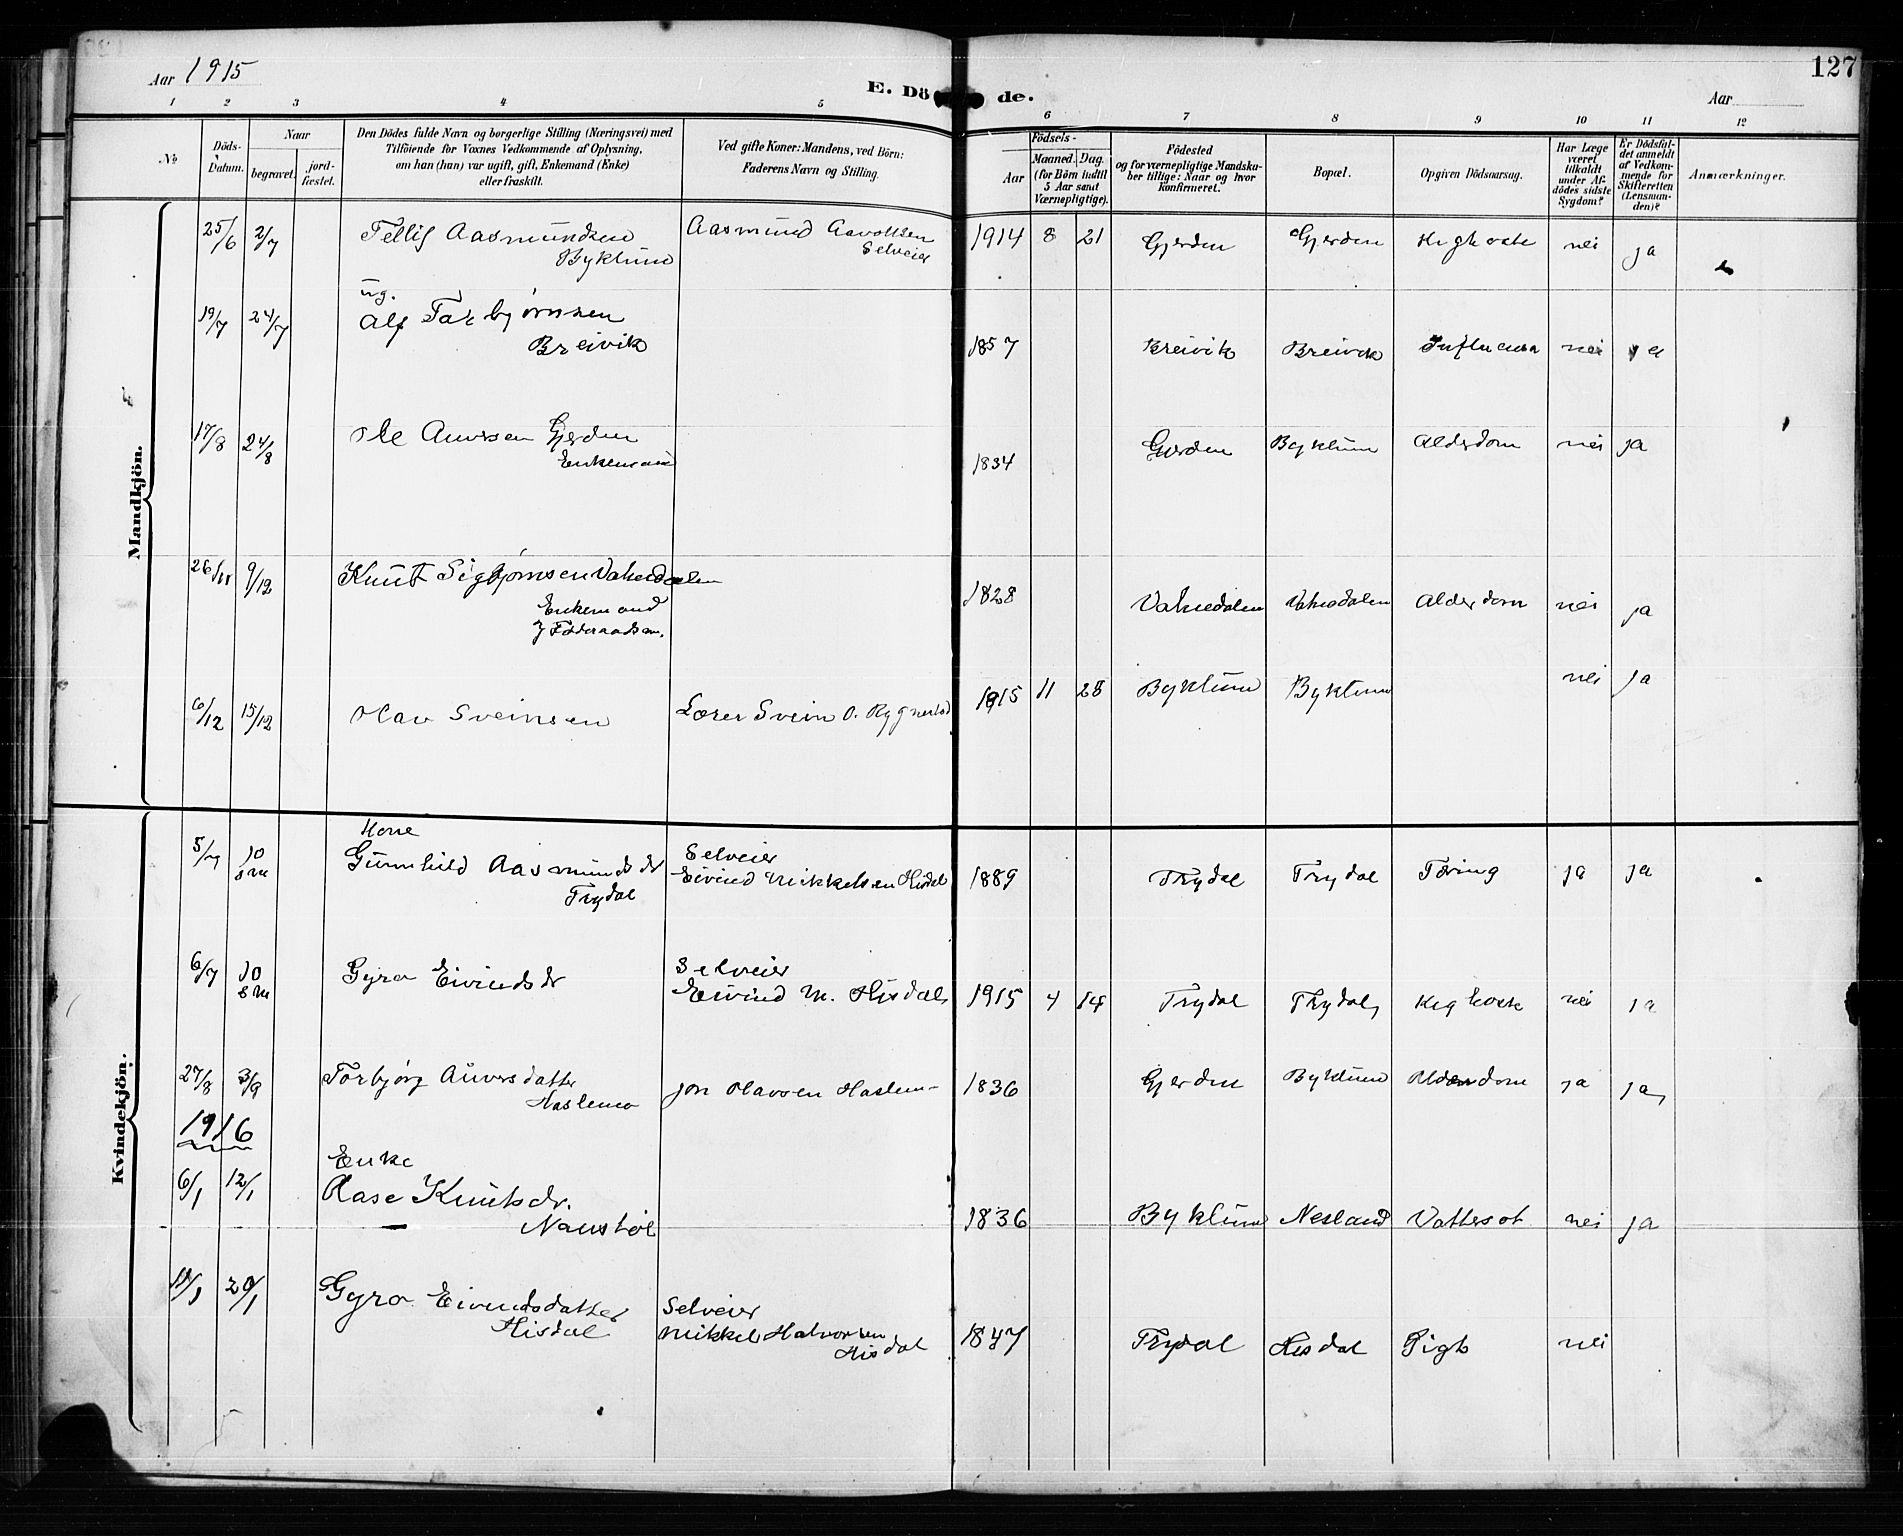 Aar 1915
E. Döde.
127
Aar
1 2 3 4 5 6 7 8 9 10 11 12
No
Döds-Datum.
Naar
begravet.
jord-fæstet.
Den Dödes fulde Navn og borgerlige Stilling (Næringsvei) med
Tilföiende for Voxnes Vedkommende af Oplysning,
om han (hun) var ugift, gift, Enkemand (Enke)
eller fraskilt.
Ved gifte Koner: Mandens, ved Börn:
Faderens Navn og Stilling.
Födsels-
Aar
Maaned. Dag.
(for Börn indtil
5 Aar samt
Værnepligtige).
Födested
og for værnepligtige Mandska-
ber tillige: Naar og hvor
konfirmeret.
Bopæl.
Opgiven Dödsaarsag.
Har Læge
været
tilkaldt
under Af-
dödes sidste
Sygdom?
Er Dödsfal-
det anmeldt
af Vedkom-
mende for
Skifteretten
(Lensman-
den)?
Anmærkninger.
Mandkjön.
25/6 2/7 Tellif Aasmundsen Aasmund Aavoltsen 1914 8 21 Gjerden Gjerden Kighoste nei ja
Byklum Selveier
ug.
19/7 24/7 Alf Tarbjørnsen
Breivik 1857 Breivik Breivik Influensa nei ja
17/8 24/8 Ole Auversen Gjerden Gjerden Byklum Alderdom nei ja
Enkemand 1834
26/11 9/12 Knut Sigbjørnsen Vatnedalen
Enkemand 1828 Vatnedalen Vatnedalen Alderdom nei ja
Føderaadsm.
6/12 15/12 Olav Sveinsen Lærer Svein O. Rygnestad 1915 11 28 Byklum Byklum nei ja
Kvindekjön.
Kone
5/7 10 Gunnhild Aasmundsdr Selveier
Trydal Eivind Mikkelsen Hisdal 1889 Trydal Trydal Tæring ja ja
6/7 10 Gyro Eivindsdr Selveier
Eivind M. Hisdal 1915 4 14 Trydal Trydal Kighoste nei ja
27/8 3/9 Torbjørg Auversdatter Jon Olavsen Haslem- 1836 Gjerden Byklum Alderdom ja ja
1916
Enke
6/1 12/1 Aase Knutsdr.
Naustøl 1836 Byklum Nesland Vattersot nei ja
20/1 Gyro Eivindsdatter Selveier
Hisdal Mikkel Halvorsen 1847 Trydal Hisdal Gigt nei
Hisdal